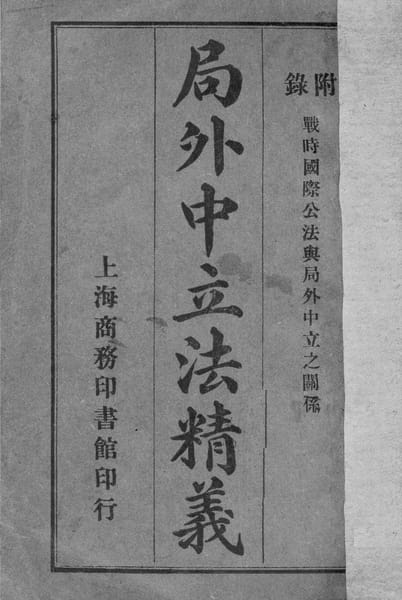 附錄
戰時國際公法與局外中立之關係
局外中立法精義
上海商務印書館印行